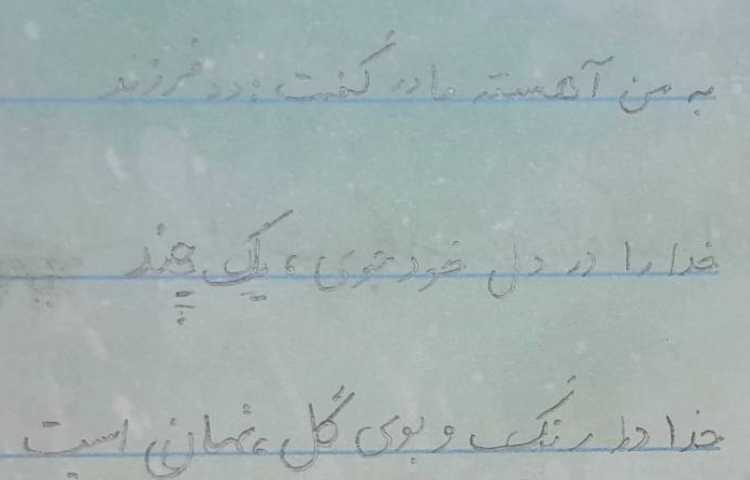 به من آهسته مادر گفت: «فرزند
خدا را در دل خود جوی، یک چند
خدا در رنگ و بوی گل نهان است